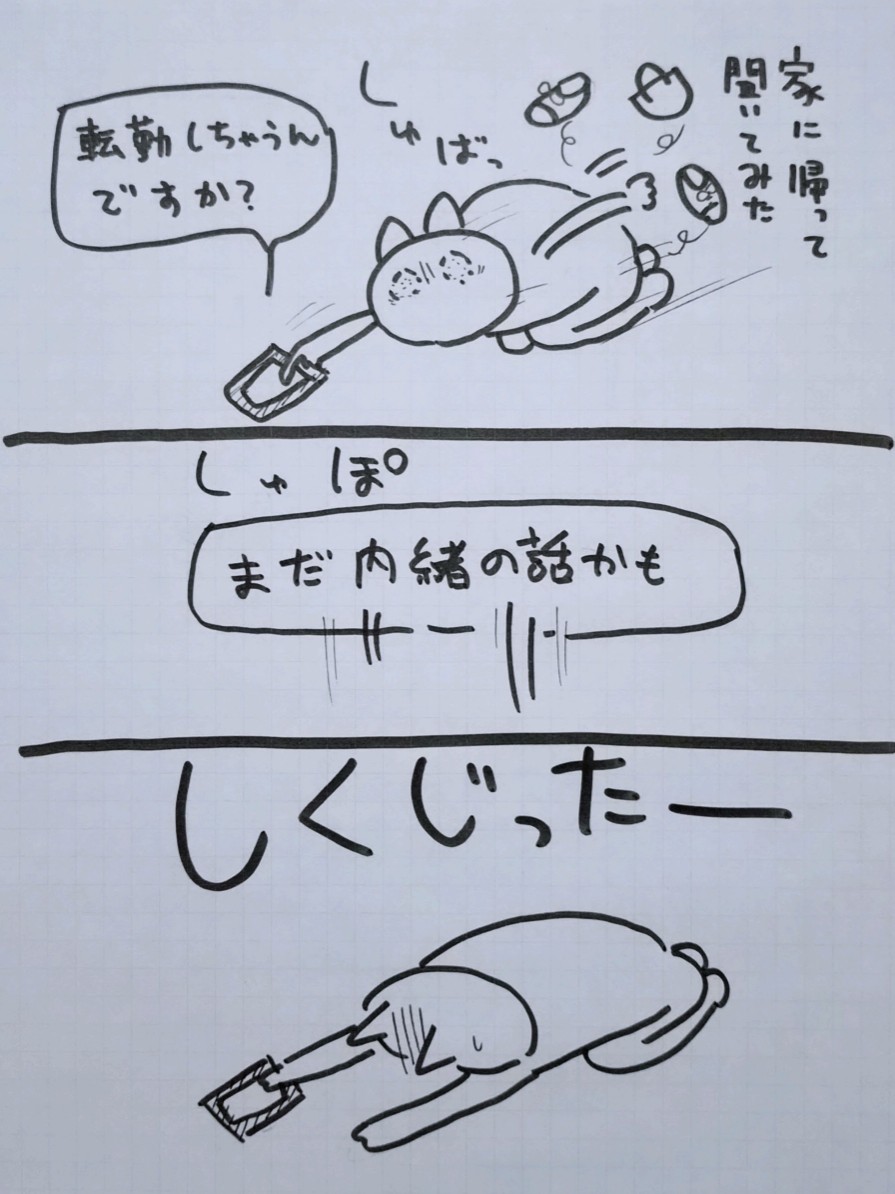 家に帰って
聞いてみた
しゅばっ
転勤しちゃうん
ですか?
しゅぽ
まだ内緒の話かも
しくじったー